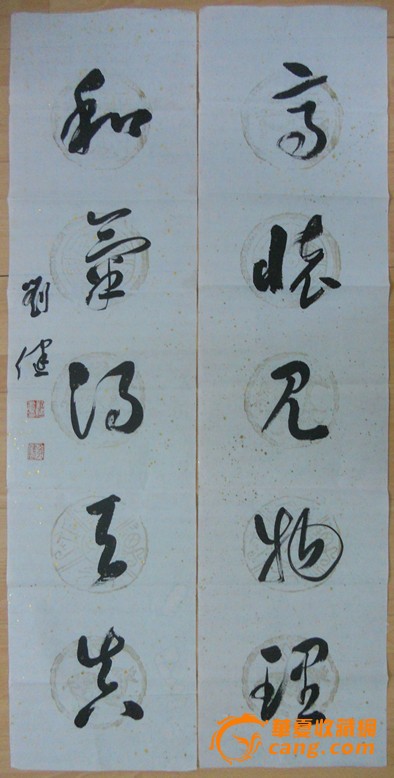 高懷見物理
和氣得天真
劉健
華夏收藏網
cang.com